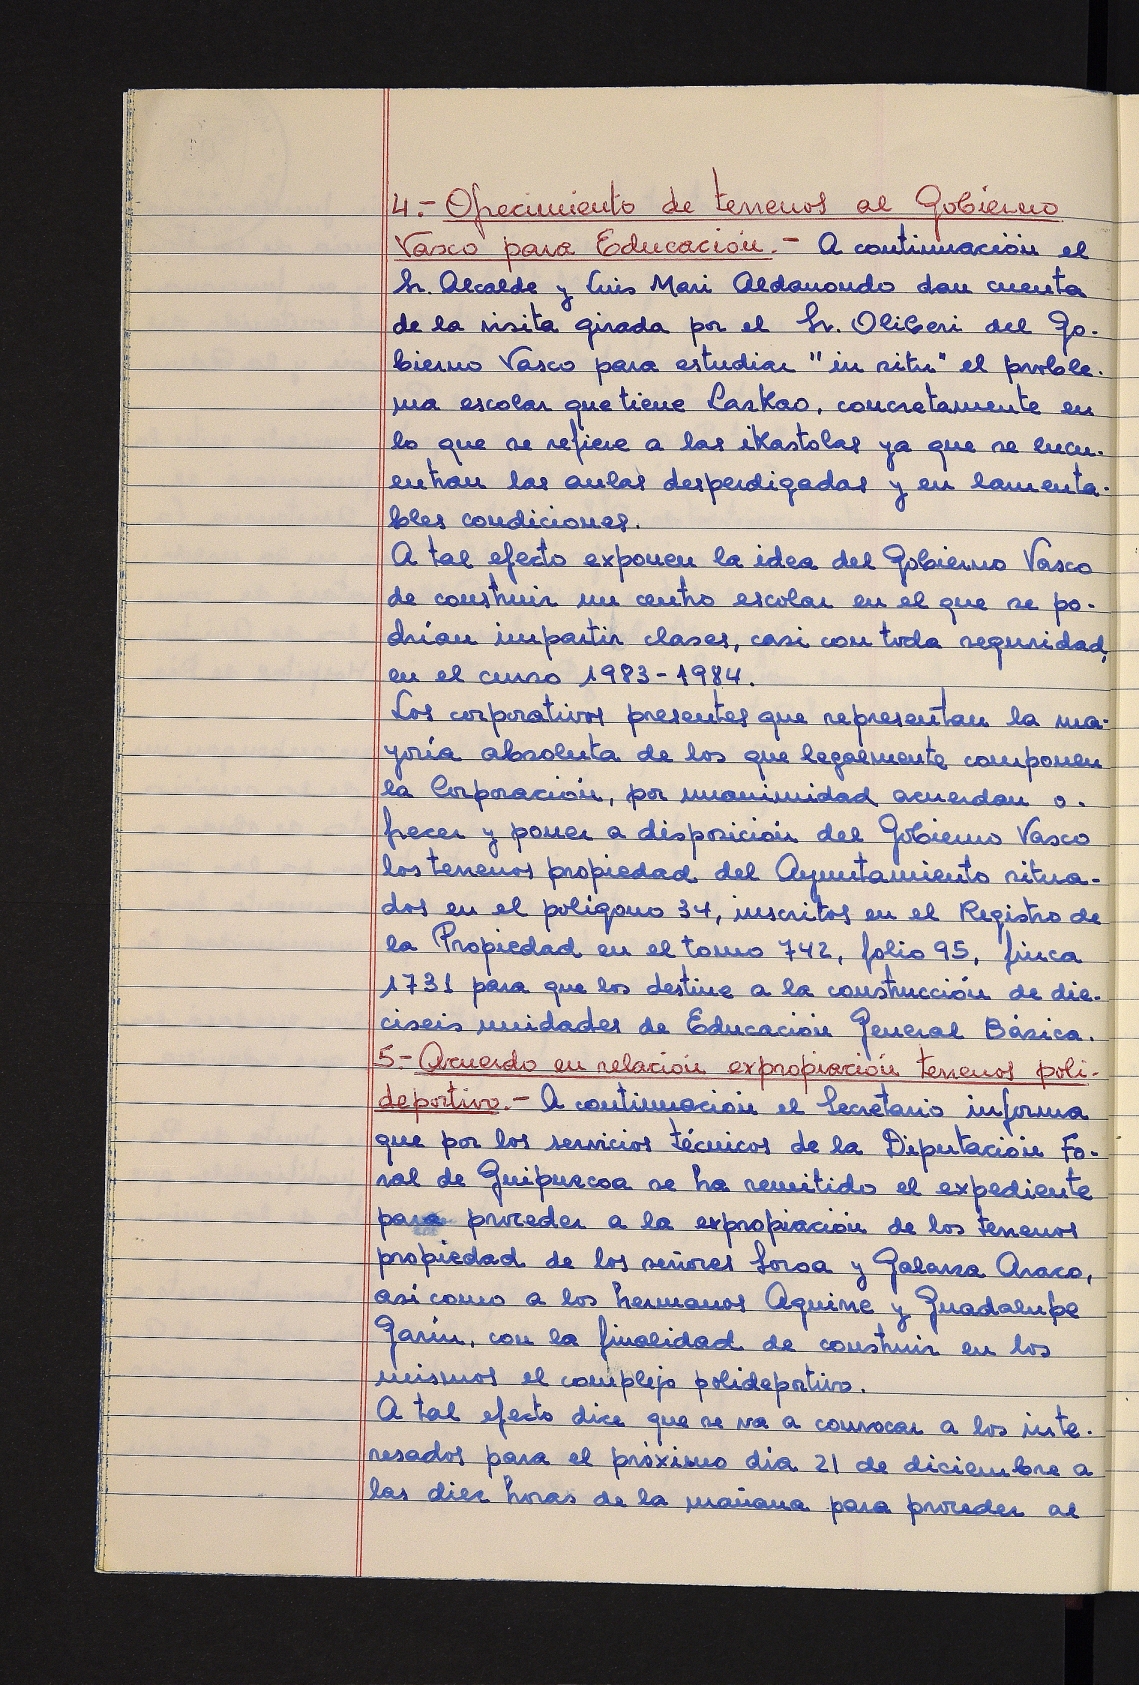 4.- Ofrecimiento de terrenos al Gobierno
Vasco para Educación.- A continuación el
Sr. Alcalde y Luis Mari Aldanondo dan cuenta
de la visita girada por el Sr. Oliberi del Go-
bierno Vasco para estudiar "in situ" el proble-
ma escolar que tiene Lazkao, concretamente en
lo que se refiere a las iKastolas ya que se encu-
entran las aulas desperdigadas y en lamenta-
bles condiciones.
A tal efecto exponen la idea del Gobierno Vasco
de construir un centro escolar en el que se po-
drían impartir clases, casi con toda seguridad,
en el curso 1983-1984.
Los corporativos presentes que representan la ma-
yoría absoluta de los que legalmente componen
la Corporación, por unanimidad acuerdan o-
frecer y poner a disposición del Gobierno Vasco
los terrenos propiedad del Ayuntamiento situa-
dos en el polígono 34, inscritos en el Registro de
la Propiedad en el tomo 742, folio 95, finca
1731 para que los destine a la construcción de die-
ciseis unidades de Educación General Básica.
5.- Acuerdo en relación expropiación terrenos poli-
deportivo.- A continuación el Secretario informa
que por los servicios técnicos de la Diputación Fo-
ral de Guipuzcoa se ha remitido el expediente
para proceder a la expropiación de los terrenos
propiedad de los señores Soroa y Galarza Araco,
asi como a los hermanos Aguirre y Guadalupe
Garín, con la finalidad de construir en los
mismos el complejo polideportivo.
A tal efecto dice que se va a convocar a los inte-
resados para el próximo dia 21 de diciembre a
las diez horas de la mañana para proceder al